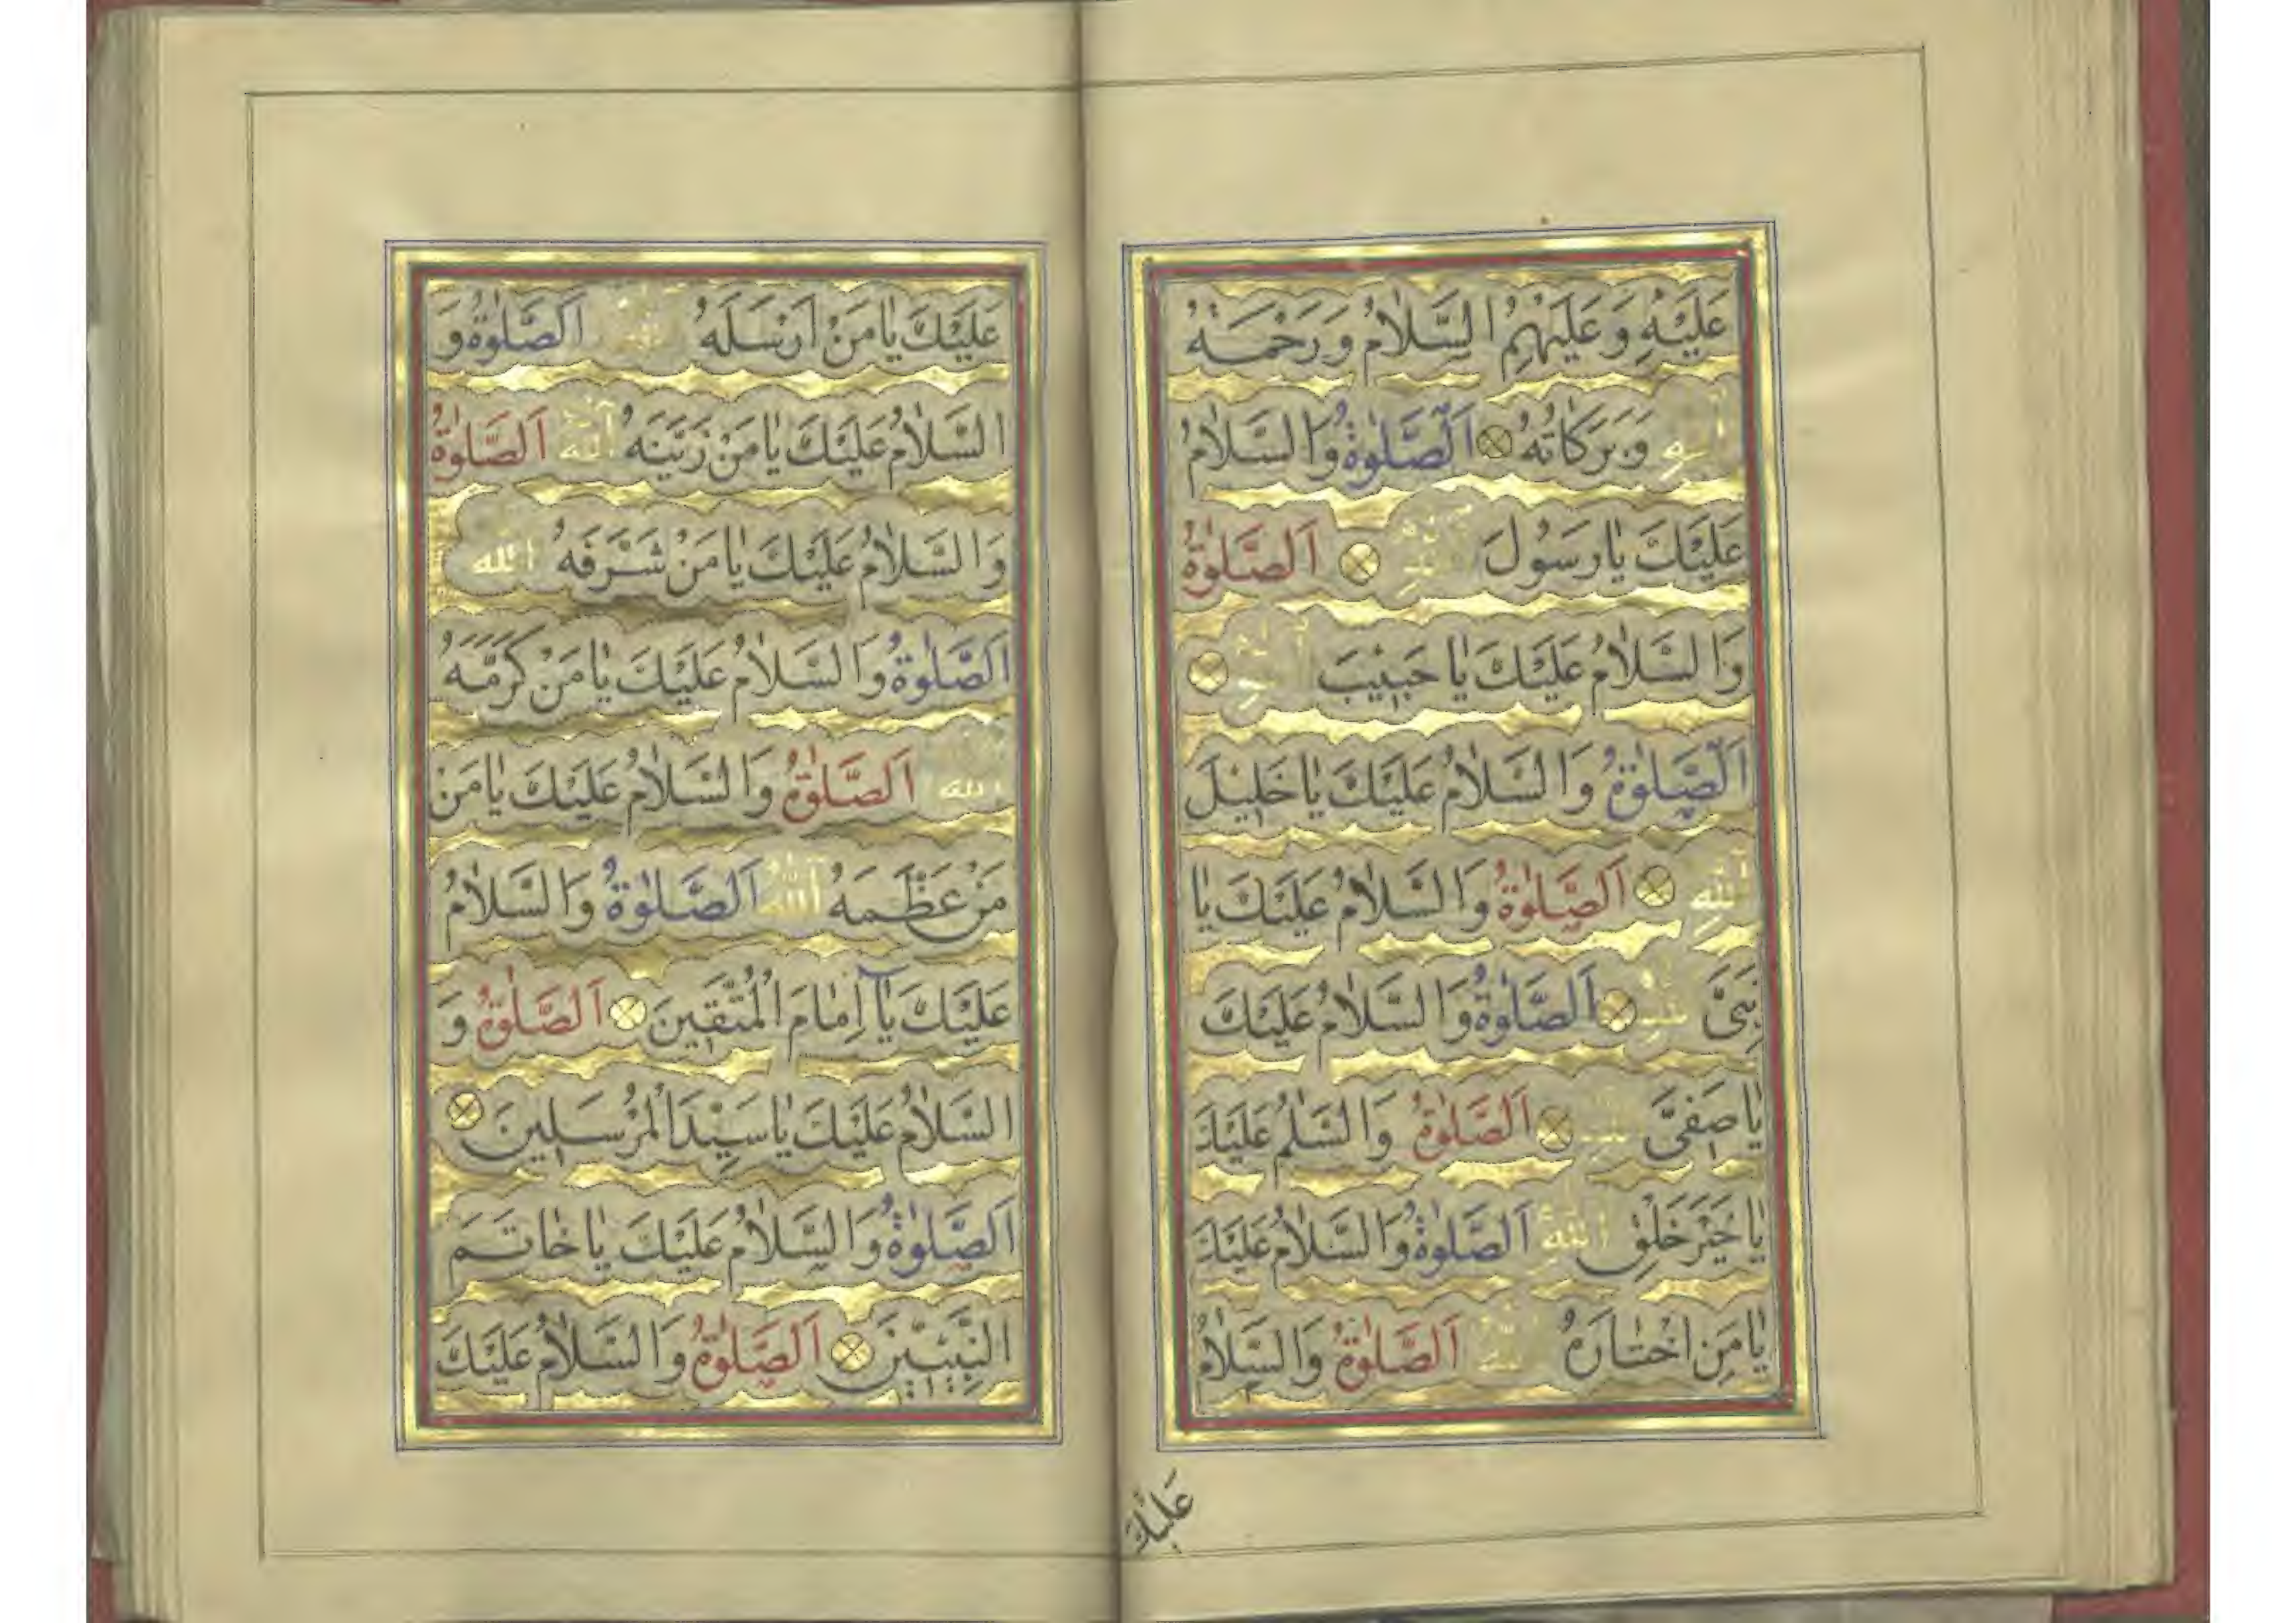 عَلَيْهِ وَعَلَيْهِمُ السَّلَامُ وَرَحْمَةُ
اللهِ وَبَرَكَاتُهُ اَلصَّلٰوةُ وَالسَّلَامُ
عَلَيْكَ يَا رَسُولَ اللهِ اَلصَّلٰوةُ
وَالسَّلَامُ عَلَيْكَ يَا حَبِيْبَ اللهِ
اَلصَّلٰوةُ وَالسَّلَامُ عَلَيْكَ يَا خَلِيْلَ
اللهِ اَلصَّلٰوةُ وَالسَّلَامُ عَلَيْكَ يَا
نَبِىَّ اللهِ اَلصَّلٰوةُ وَالسَّلَامُ عَلَيْكَ
يَا صَفِىَّ اللهِ اَلصَّلٰوةُ وَالسَّلٰمُ عَلَيْكَ
يَا خَيْرَ خَلْقِ اللهِ اَلصَّلٰوةُ وَالسَّلَامُ عَلَيْكَ
يَا مَنِ اخْتَارَهُ اللهُ اَلصَّلٰوةُ وَالسَّلَامُ
عَلَيْكَ
عَلَيْكَ يَا مَنْ اَرْسَلَهُ اللهُ اَلصَّلٰوةُ وَ
السَّلَامُ عَلَيْكَ يَا مَنْ زَيَّنَهُ اللهُ اَلصَّلٰوةُ
وَالسَّلَامُ عَلَيْكَ يَا مَنْ شَرَّفَهُ اللهُ
اَلصَّلٰوةُ وَالسَّلَامُ عَلَيْكَ يَا مَنْ كَرَّمَهُ
اللهُ اَلصَّلٰوةُ وَالسَّلَامُ عَلَيْكَ يَا مَنْ
مَنْ عَظَّمَهُ اللهُ اَلصَّلٰوةُ وَالسَّلَامُ
عَلَيْكَ يَا اِمَامَ الْمُتَّقِيْنَ اَلصَّلٰوةُ وَ
السَّلَامُ عَلَيْكَ يَا سَيِّدَ الْمُرْسَلِيْنَ
اَلصَّلٰوةُ وَالسَّلَامُ عَلَيْكَ يَا خَاتَمَ
النَّبِيِّيْنَ اَلصَّلٰوةُ وَالسَّلَامُ عَلَيْكَ